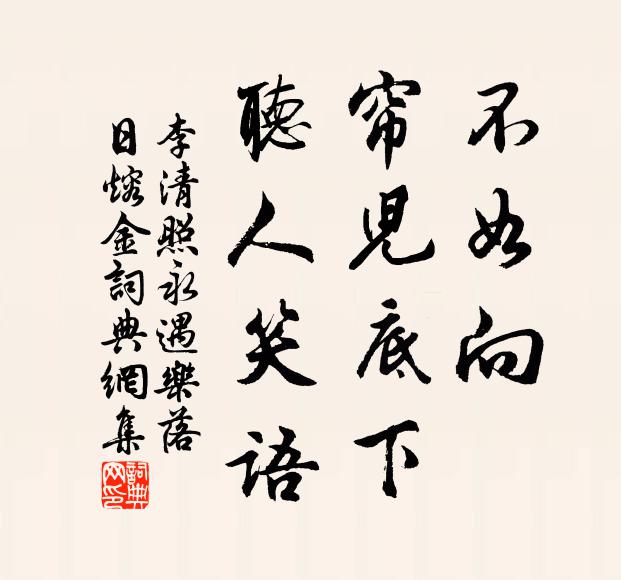 不如向
帘兒底下
聽人笑語
李清照永遇樂落
日熔金詞典網集
詞典網印